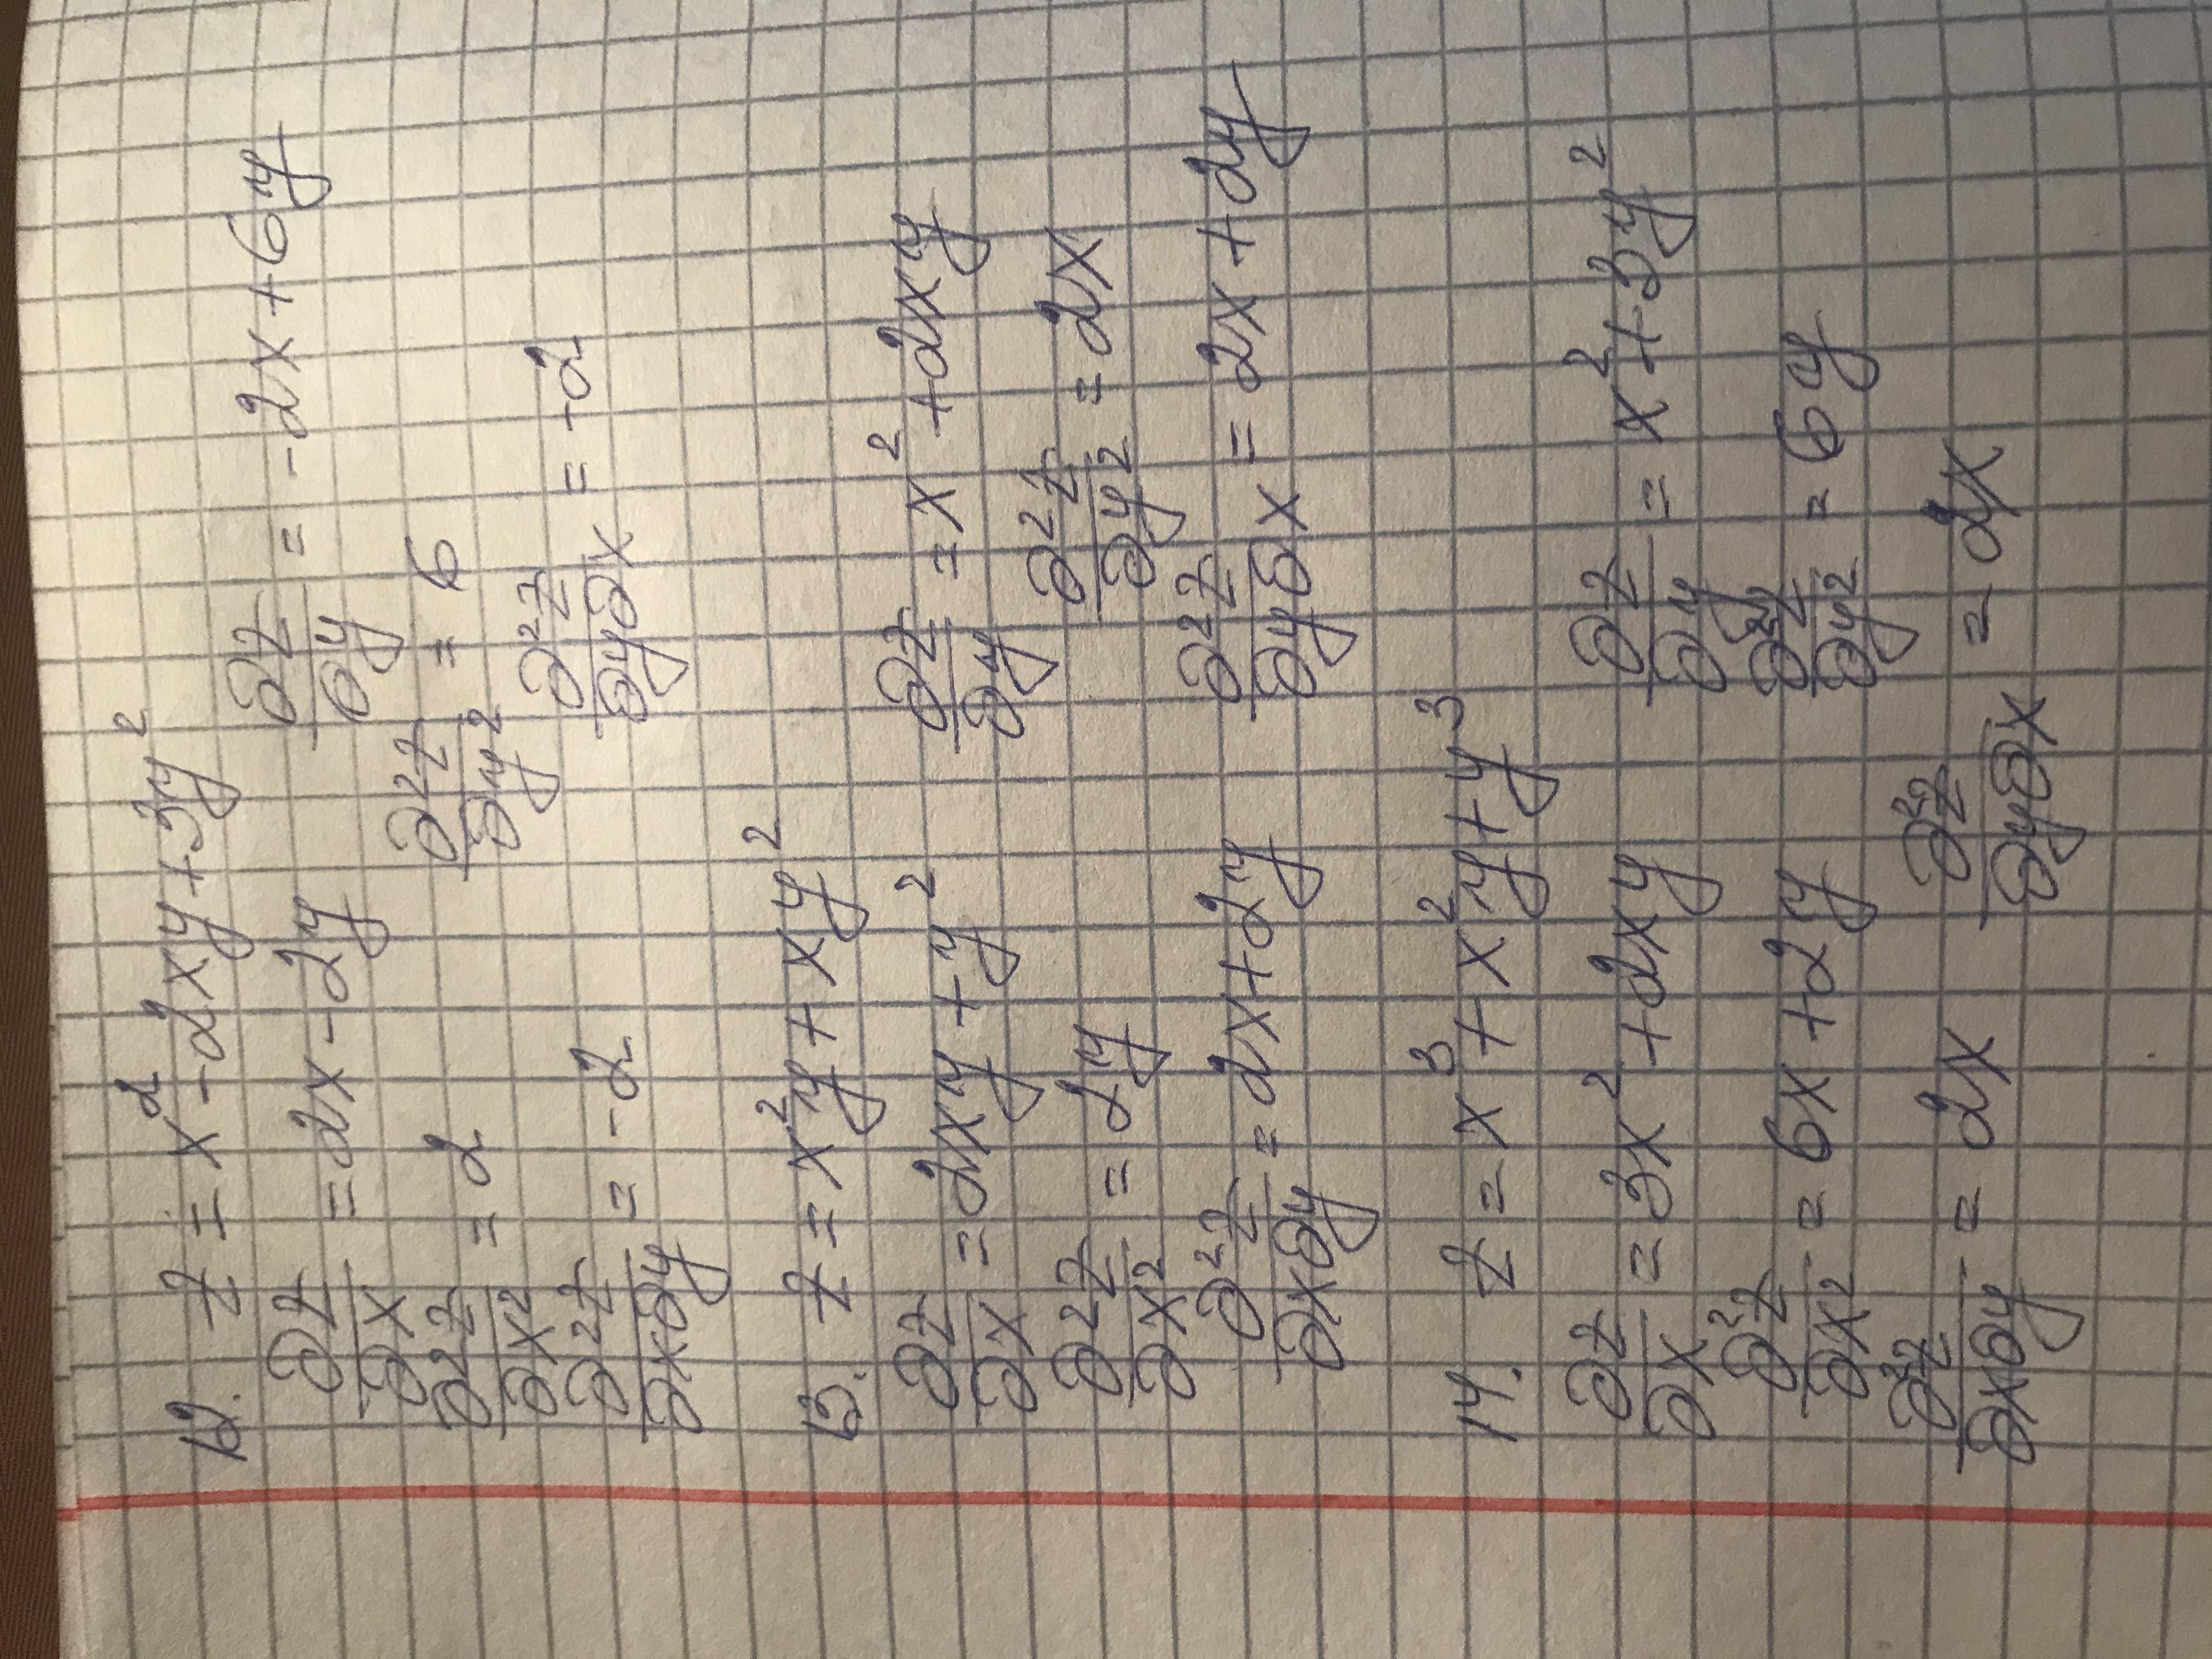 12. z = x² - 2xy + 3y²
∂z/∂x = 2x - 2y ∂z/∂y = -2x + 6y
∂²z/∂x² = 2 ∂²z/∂y² = 6
∂²z/∂x∂y = -2 ∂²z/∂y∂x = -2
13. z = x²y + xy²
∂z/∂x = 2xy + y² ∂z/∂y = x² + 2xy
∂²z/∂x² = 2y ∂²z/∂y² = 2x
∂²z/∂x∂y = 2x + 2y ∂²z/∂y∂x = 2x + 2y
14. z = x³ + x²y + y³
∂z/∂x = 3x² + 2xy ∂z/∂y = x² + 3y²
∂²z/∂x² = 6x + 2y ∂²z/∂y² = 6y
∂²z/∂x∂y = 2x ∂²z/∂y∂x = 2x